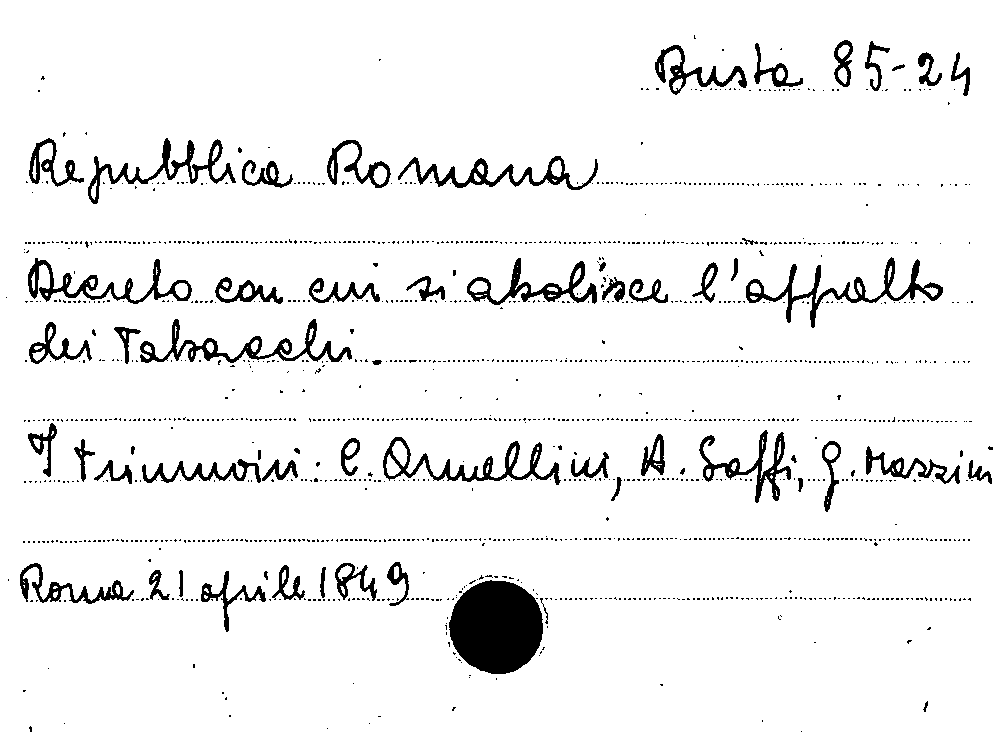 Busta 85-24
Repubblica Romana
Decreto con cui si abolisce l'appalto
dei Tabacchi.
I triumviri: C. Armellini, A. Saffi, G. Mazzini
Roma 21 aprile 1849